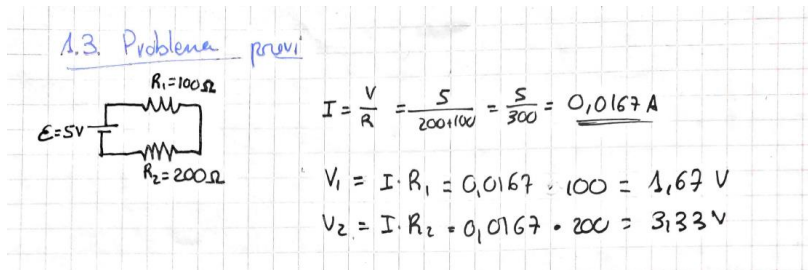 1.3. Problema previ
R₁=100Ω
ε=5V
R₂=200Ω
I = V/R = 5/(200+100) = 5/300 = 0,0167 A
V₁ = I·R₁ = 0,0167 · 100 = 1,67 V
V₂ = I·R₂ = 0,0167 · 200 = 3,33 V